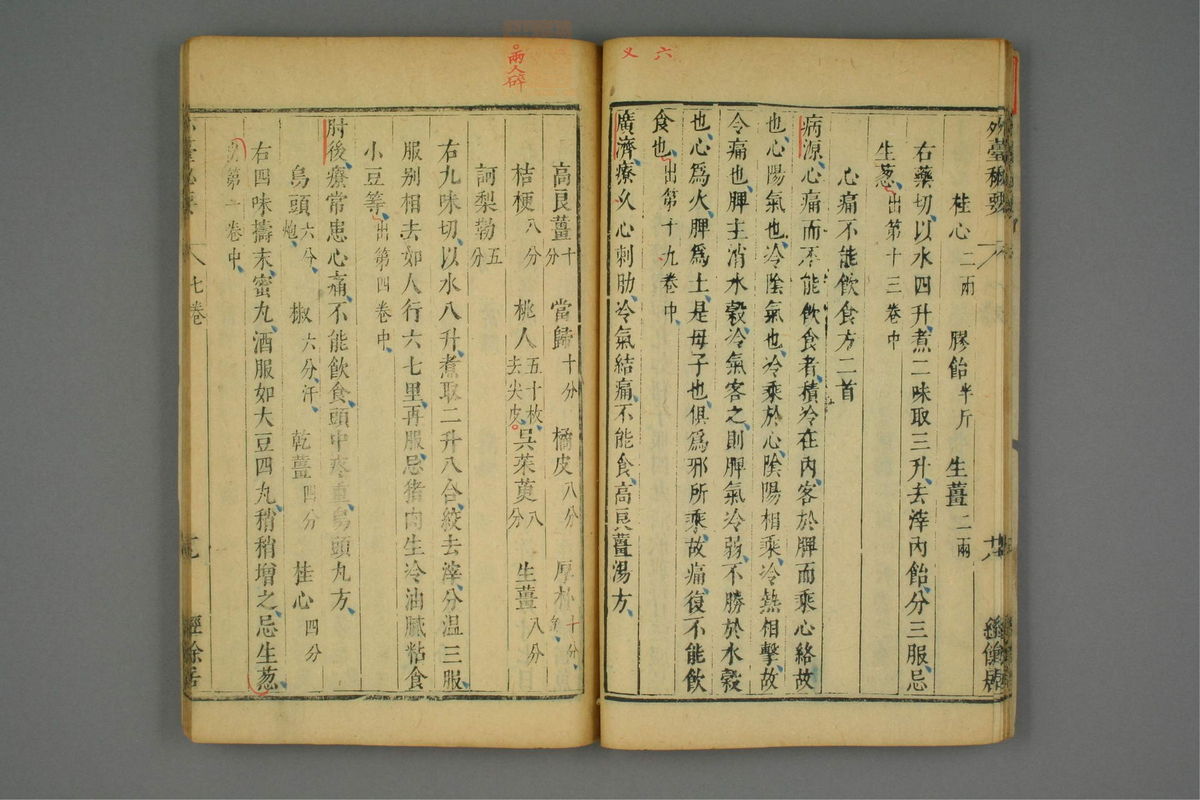 六
又
外臺秘要
桂心二兩 膠飴半斤 生薑二兩
右藥切以水四升煮二味取三升去滓內飴分三服忌
生葱出第十三卷中
心痛不能飲食方二首
病源心痛而不能飲食者積冷在內客於脾而乘心絡故
也心陽氣也冷陰氣也冷乘於心陰陽相乘冷熱相擊故
令痛也脾主消水穀冷氣客之則脾氣冷弱不勝於水穀
也心為火脾為土是母子也俱為邪所乘故痛復不能飲
食也出第十九卷中
廣濟療久心刺肋冷氣結痛不能食高良薑湯方
兩人碎
高良薑十分 當歸十分 橘皮八分 厚朴十分
桔梗八分 桃人五十枚去尖皮 吳茱萸八分 生薑八分
訶梨勒五分
右九味切以水八升煮取二升八合絞去滓分温三服
服别相去如人行六七里再服忌猪肉生冷油膩粘食
小豆等出第四卷中
肘後療常患心痛不能飲食頭中疼重烏頭丸方
烏頭六分炮 椒六分汗 乾薑四分 桂心四分
右四味擣末蜜丸酒服如大豆四丸稍稍增之忌生葱
出第一卷中
七卷
經餘居